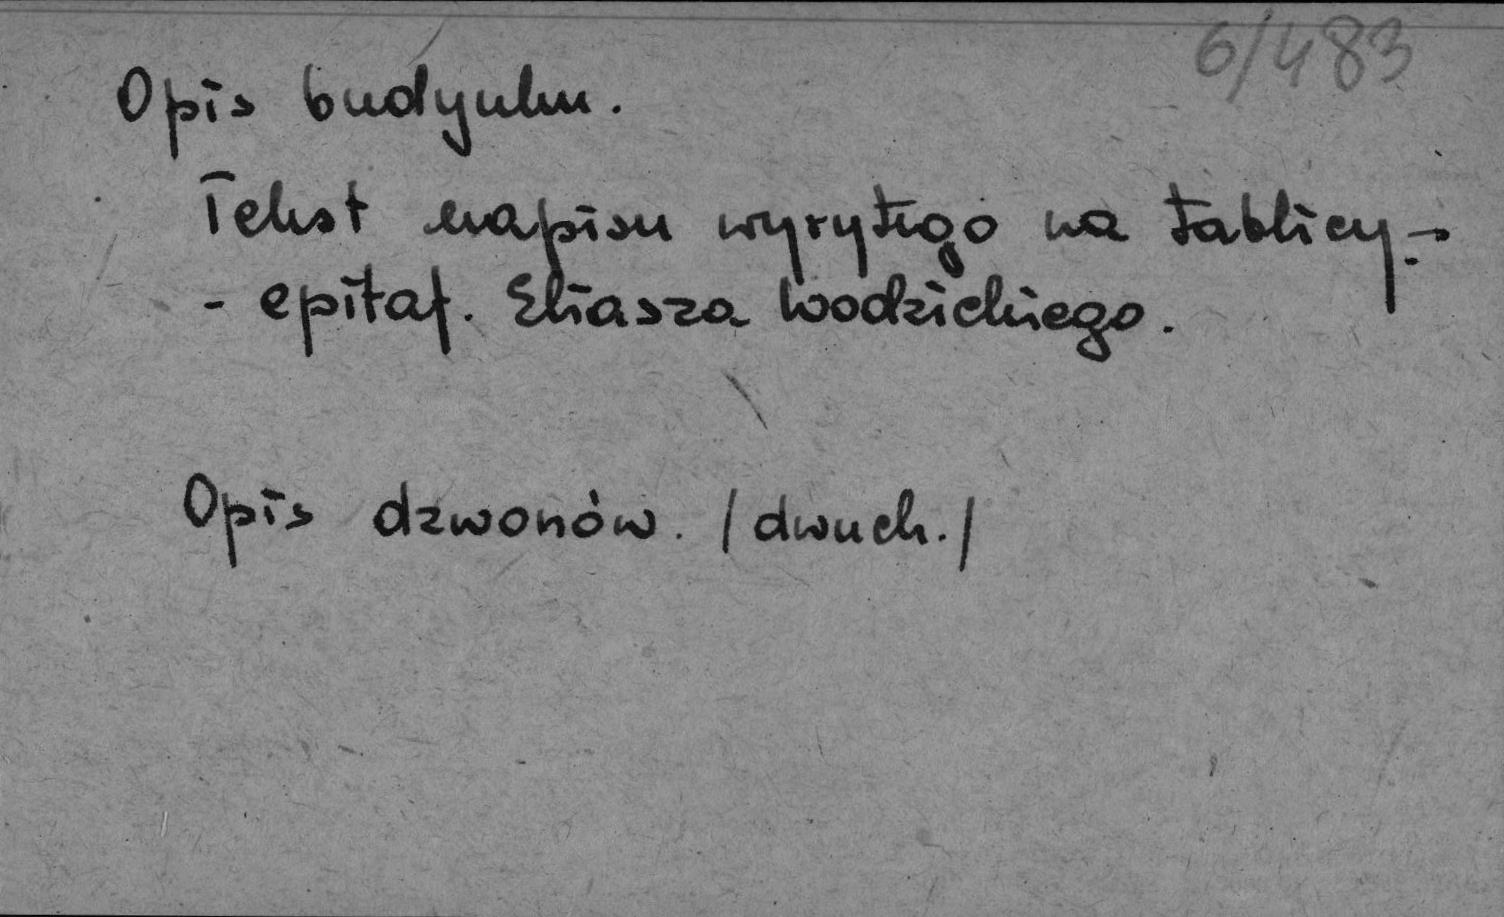 6/483
Opis budynku.
Tekst napisu wyrytego na tablicy -
- epitaf. Eliasza Wodzickiego.
Opis dzwonów. /dwuch./